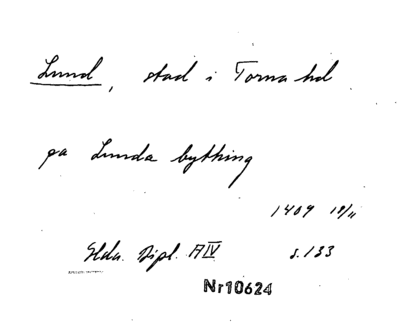 Lund, stad i Torna hd
pa Lunda bything
1409 19/11
Dipl. A IV s. 133
Nr 10624